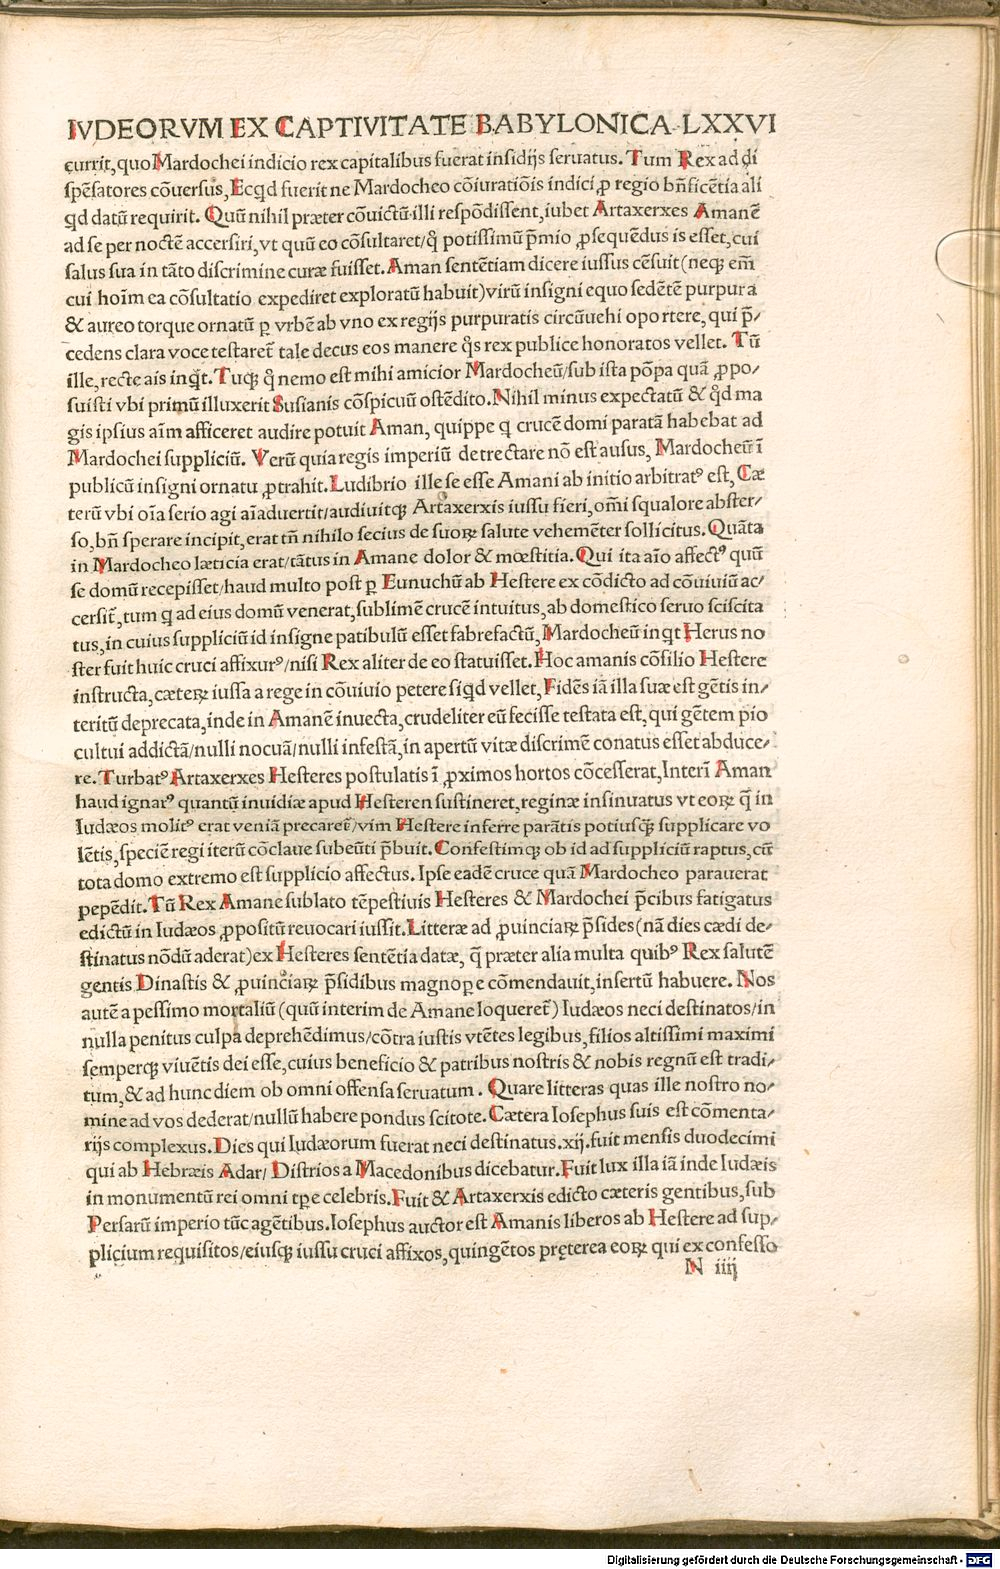 IVDEORVM EX CAPTIVITATE BABYLONICA LXXVI
currit, quo Mardochei indicio rex capitalibus fuerat insidijs seruatus. Tum Rex ad di
spẽsatores cõuersus, Ecqd fuerit ne Mardocheo cõiuratiõis indici ꝓ regio bñficẽtia ali
qd datũ requirit. Quũ nihil præter cõuictũ illi respõdissent, iubet Artaxerxes Amanẽ
ad se per noctẽ accersiri, vt quũ eo cõsultaret/ꝙ potissimũ p̃mio ꝓsequẽdus is esset, cui
salus sua in tãto discrimine curæ fuisset. Aman sentẽtiam dicere iussus cẽsuit (neqꝫ em̃
cui hoĩm ea cõsultatio expediret exploratũ habuit) virũ insigni equo sedẽtẽ purpura
& aureo torque ornatũ ꝑ vrbẽ ab vno ex regijs purpuratis circũuehi oportere, qui p̃/
cedens clara voce testaret̃ tale decus eos manere q̃s rex publice honoratos vellet. Tũ
ille, recte ais inq̃t. Tuqꝫ ꝙ nemo est mihi amicior Mardocheũ/sub ista põpa quã ꝓpo/
suisti vbi primũ illuxerit Susianis cõspicuũ ostẽdito. Nihil minus expectatũ & ꝙd ma
gis ipsius aĩm afficeret audire potuit Aman, quippe q crucẽ domi paratã habebat ad
Mardochei suppliciũ. Verũ quia regis imperiũ detrectare nõ est ausus, Mardocheũ ĩ
publicũ insigni ornatu ꝓtrahit. Ludibrio ille se esse Amani ab initio arbitratꝰ est, Cæ
terũ vbi oĩa serio agi aĩaduertit/audiuitqꝫ Artaxerxis iussu fieri, om̃i squalore abster/
so, bñ sperare incipit, erat tñ nihilo secius de suoꝝ salute vehemẽter sollicitus. Quãta
in Mardocheo læticia erat/tãtus in Amane dolor & mœstitia. Qui ita aĩo affectꝰ quũ
se domũ recepisset/haud multo post ꝑ Eunuchũ ab Hestere ex cõdicto ad cõuiuiũ ac/
cersit̃, tum q ad eius domũ venerat, sublimẽ crucẽ intuitus, ab domestico seruo sciscita
tus, in cuius suppliciũ id insigne patibulũ esset fabrefactũ, Mardocheũ inq̃t Herus no
ster fuit huic cruci affixurꝰ/nisi Rex aliter de eo statuisset. Hoc amanis cõsilio Hestere
instructa, cæteꝝ iussa a rege in cõuiuio petere siqd vellet, Fidẽs iã illa suæ est gẽtis in/
teritũ deprecata, inde in Amanẽ inuecta, crudeliter eũ fecisse testata est, qui gẽtem pio
cultui addictã/nulli nocuã/nulli infestã, in apertũ vitæ discrimẽ conatus esset abduce/
re. Turbatꝰ Artaxerxes Hesteres postulatis ĩ ꝓximos hortos cõcesserat, Interĩ Aman
haud ignarꝰ quantũ inuidiæ apud Hesteren sustineret, reginæ insinuatus vt eoꝝ q̃ in
Iudæos molitꝰ erat veniã precaret̃/vim Hestere inferre parãtis potiusq̃ꝫ supplicare vo
lẽtis, speciẽ regi iterũ cõclaue subeũti p̃buit. Confestimqꝫ ob id ad suppliciũ raptus, cũ
tota domo extremo est supplicio affectus. Ipse eadẽ cruce quã Mardocheo parauerat
pepẽdit. Tũ Rex Amane sublato tẽpestiuis Hesteres & Mardochei p̃cibus fatigatus
edictũ in Iudæos ꝓpositũ reuocari iussit. Litteræ ad ꝓuinciaꝝ p̃sides (nã dies cædi de/
stinatus nõdũ aderat) ex Hesteres sentẽtia datæ, q̃ præter alia multa quibꝰ Rex salutẽ
gentis Dinastis & ꝓuinciaꝝ p̃sidibus magnope cõmendauit, insertũ habuere. Nos
autẽ a pessimo mortaliũ (quũ interim de Amane loqueret̃) Iudæos neci destinatos/in
nulla penitus culpa deprehẽdimus/cõtra iustis vtẽtes legibus, filios altissimi maximi
semperqꝫ viuẽtis dei esse, cuius beneficio & patribus nostris & nobis regnũ est tradi/
tum, & ad hunc diem ob omni offensa seruatum. Quare litteras quas ille nostro no/
mine ad vos dederat/nullũ habere pondus scitote. Cætera Iosephus suis est cõmenta/
rijs complexus. Dies qui Iudæorum fuerat neci destinatus .xij. fuit mensis duodecimi
qui ab Hebræis Adar/ Distrios a Macedonibus dicebatur. Fuit lux illa iã inde Iudæis
in monumentũ rei omni tꝑe celebris. Fuit & Artaxerxis edicto cæteris gentibus, sub
Persarũ imperio tũc agẽtibus. Iosephus auctor est Amanis liberos ab Hestere ad sup/
plicium requisitos/eiusqꝫ iussu cruci affixos, quingẽtos pręterea eoꝝ qui ex confesso
N iiij
Digitalisierung gefördert durch die Deutsche Forschungsgemeinschaft - DFG